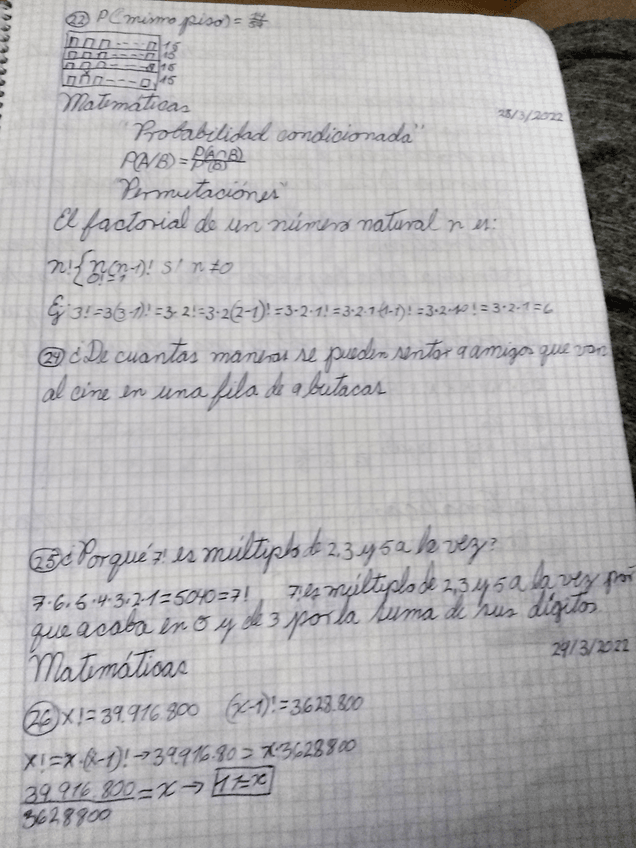 22 P(mismo piso) =
15
15
15
15
Matemáticas
28/3/2022
"Probabilidad condicionada"
P(A/B) = P(A∩B)/P(B)
"Permutaciónes"
El factorial de un número natural n es:
n! { n(n-1)! si n ≠ 0
0! = 1
Ej: 3! = 3(3-1)! = 3·2! = 3·2(2-1)! = 3·2·1! = 3·2·1(1-1)! = 3·2·1·0! = 3·2·1 = 6
24 ¿De cuantas maneras se pueden sentar 9 amigos que van
al cine en una fila de 9 butacas
25 ¿Porqué 7! es múltiplo de 2, 3 y 5 a la vez?
7·6·5·4·3·2·1 = 5040 = 7! 7! es múltiplo de 2,3 y 5 a la vez por
que acaba en 0 y de 3 por la suma de sus dígitos
Matemáticas
29/3/2022
26 x! = 39.916.800 (x-1)! = 3628.800
x! = x·(x-1)! → 39.916.80 = x·3628800
39.916.800/3628800 = x → 11 = x